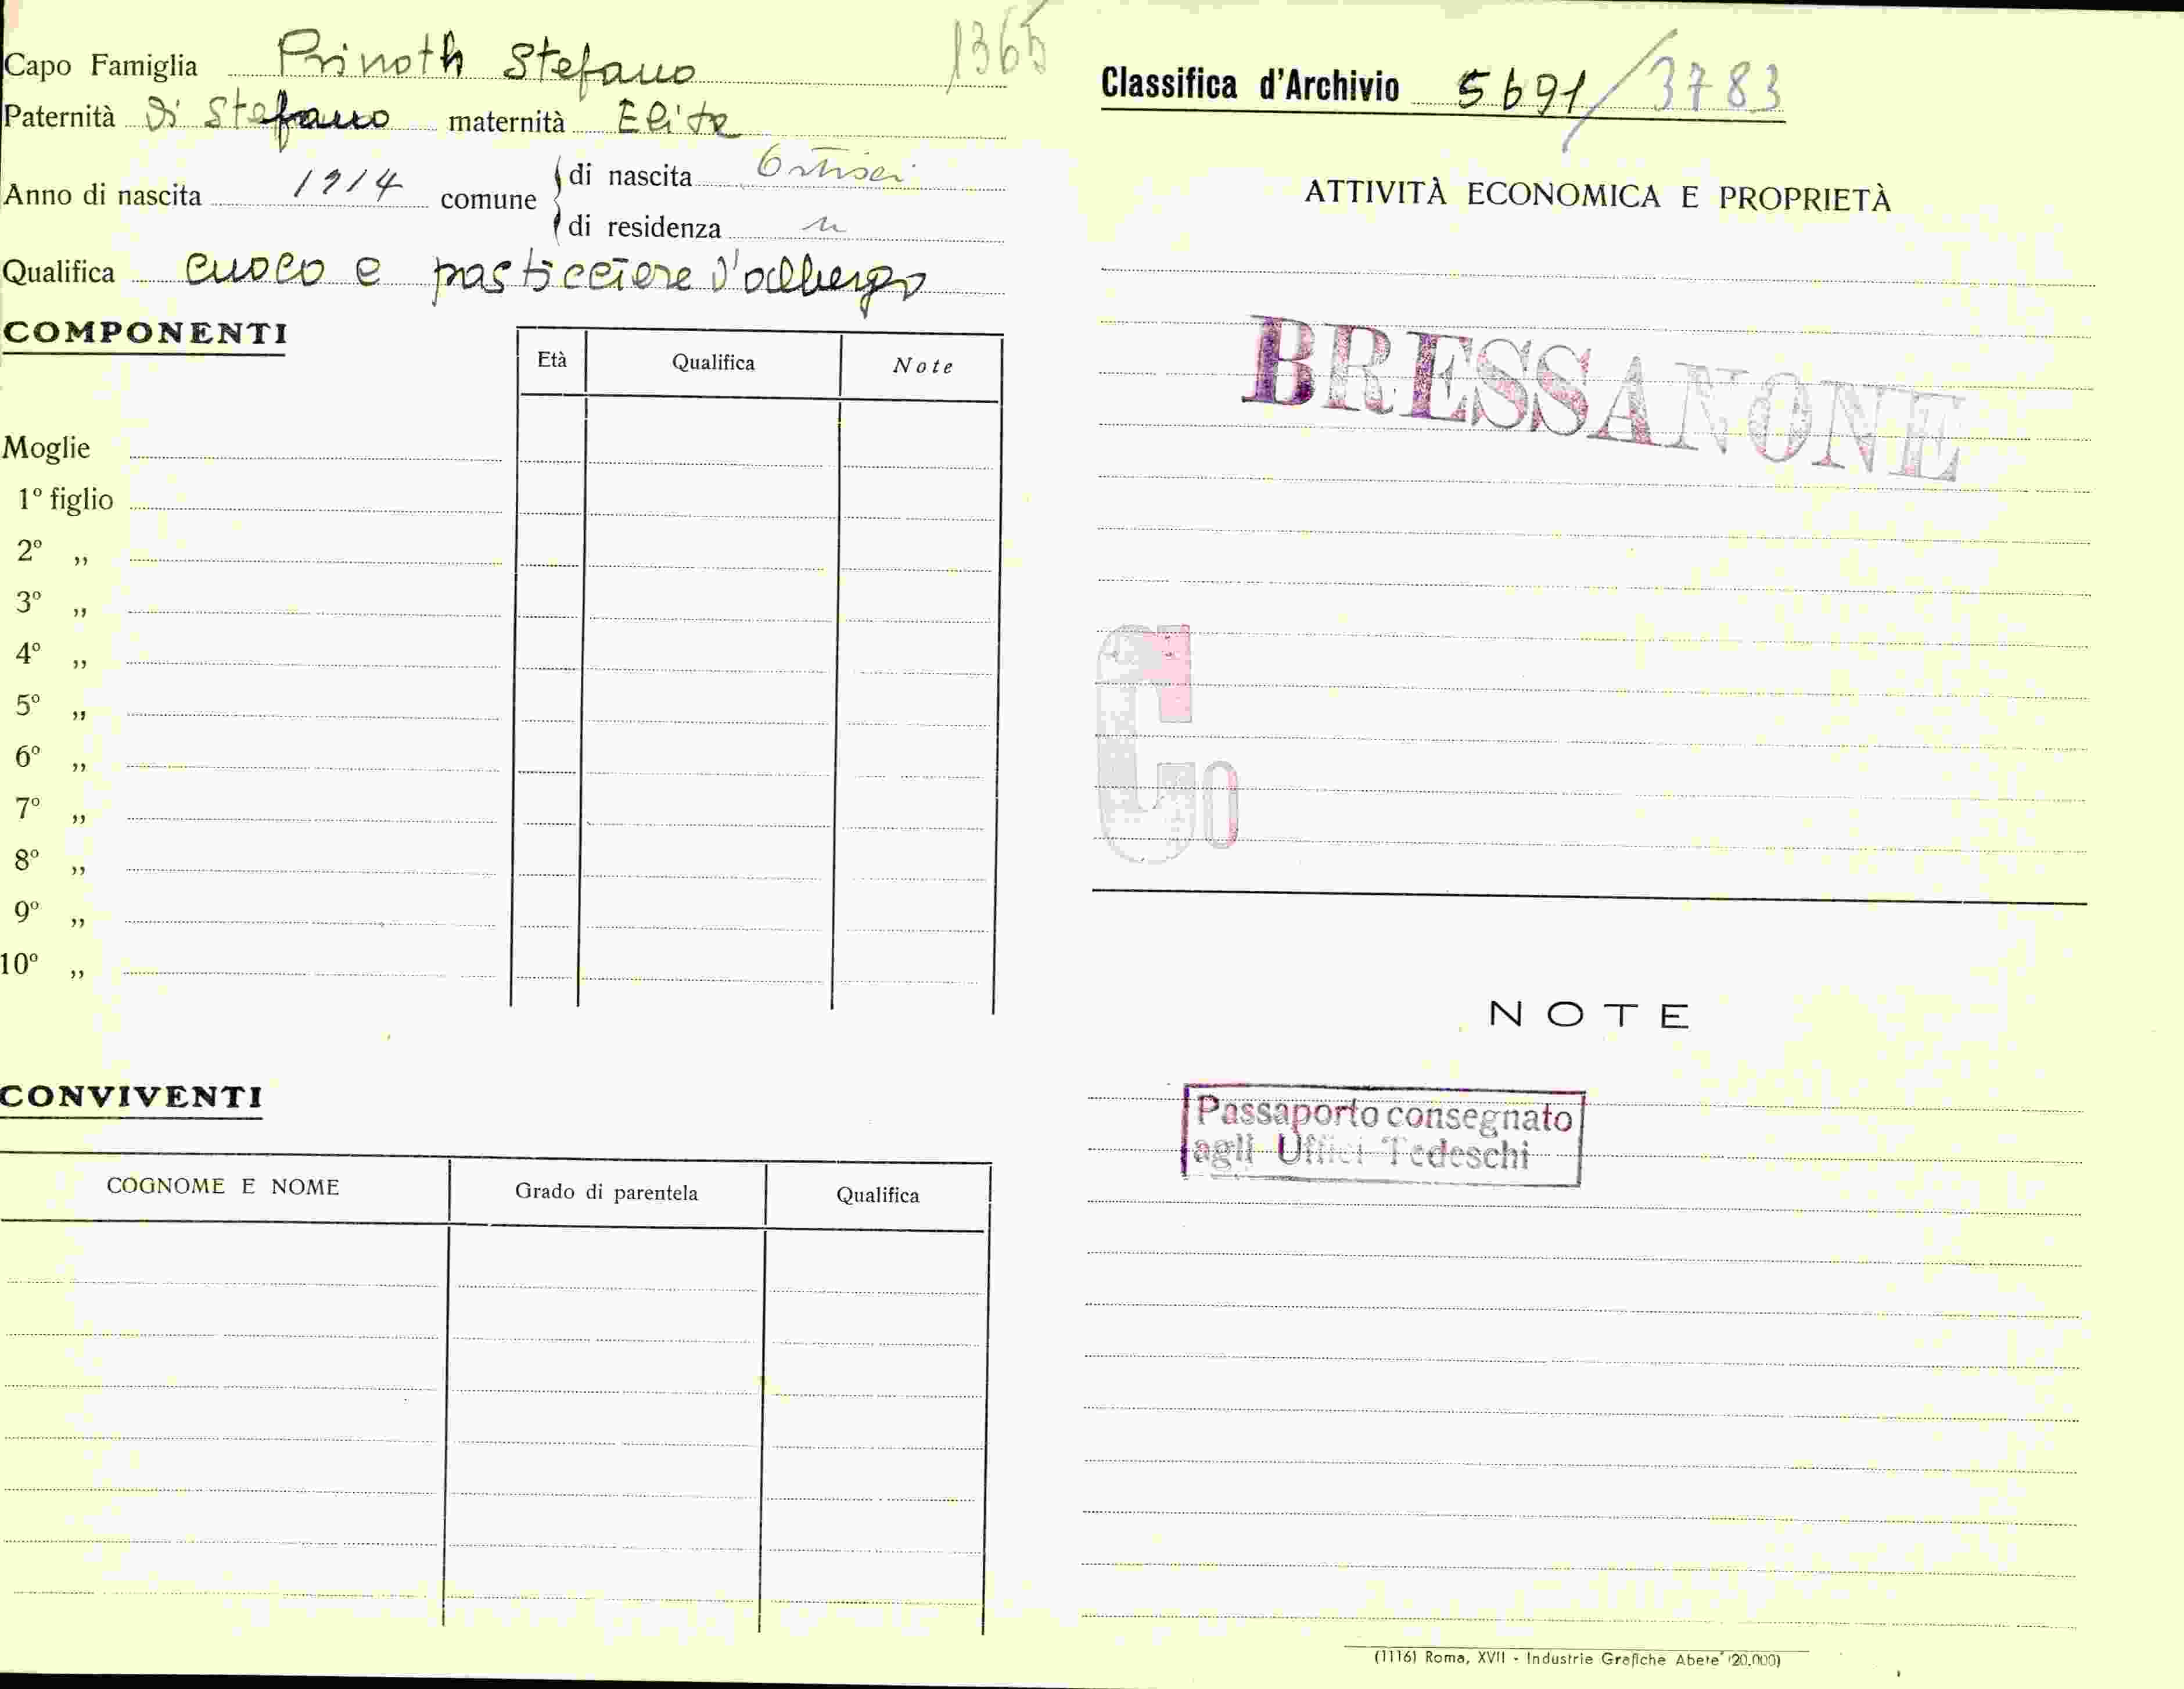 Capo Famiglia Prinoth Stefano 1365
Paternità di Stefano maternità Elita
Anno di nascita 1914 comune di nascita Ortisei
di residenza "
Qualifica cuoco e pasticciere d'albergo
COMPONENTI
Età Qualifica Note
Moglie
1º figlio
2º ,,
3º ,,
4º ,,
5º ,,
6º ,,
7º ,,
8º ,,
9º ,,
10º ,,
CONVIVENTI
COGNOME E NOME Grado di parentela Qualifica
Classifica d'Archivio 5691/3783
ATTIVITÀ ECONOMICA E PROPRIETÀ
BRESSANONE
G0
NOTE
Passaporto consegnato
agli Uffici Tedeschi
(1116) Roma, XVII - Industrie Grafiche Abete (20.000)